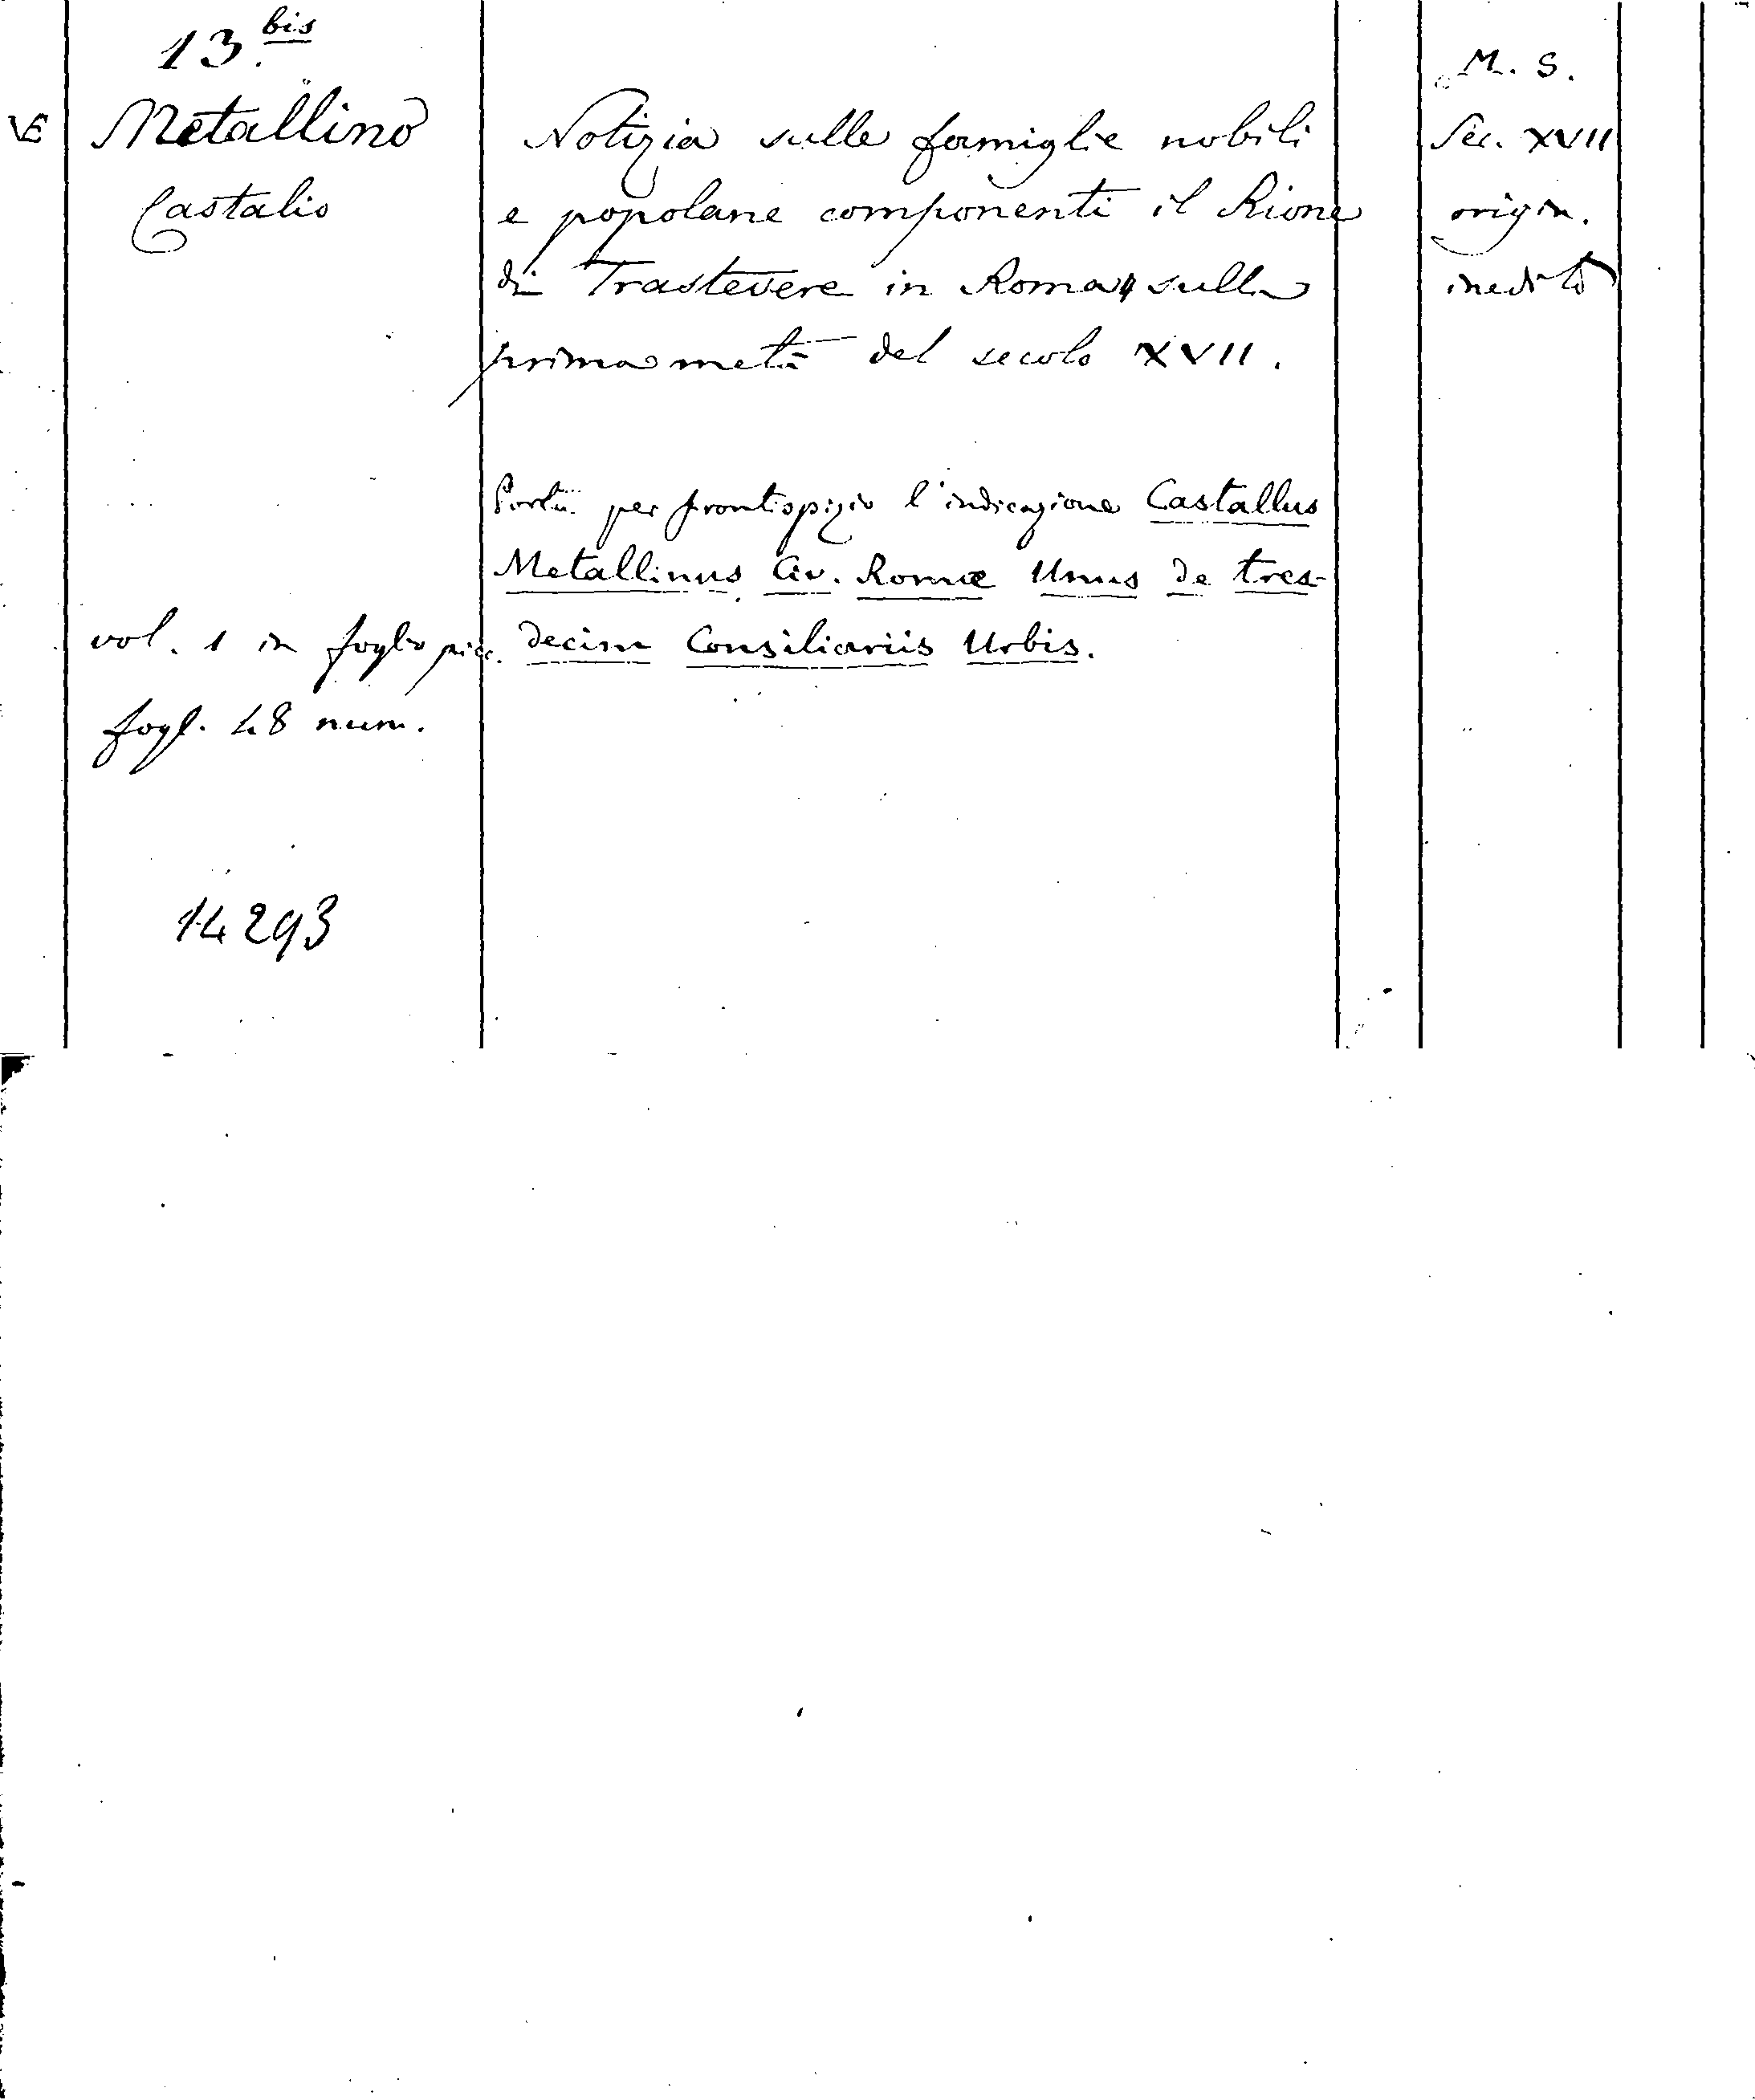 13.bis
VE
Metallino
Castalio
Notizia sulle famiglie nobili
e popolane componenti il Rione
di Trastevere in Roma sulla
prima metà del secolo XVII.
M. S.
Sec. XVII
origin.
inedito
Porta per frontispizio l'indicazione Castallus
Metallinus Civ. Romæ Unus de tres-
decim Consiliariis Urbis.
vol. 1 in foglio picc.
fogl. 48 num.
14293